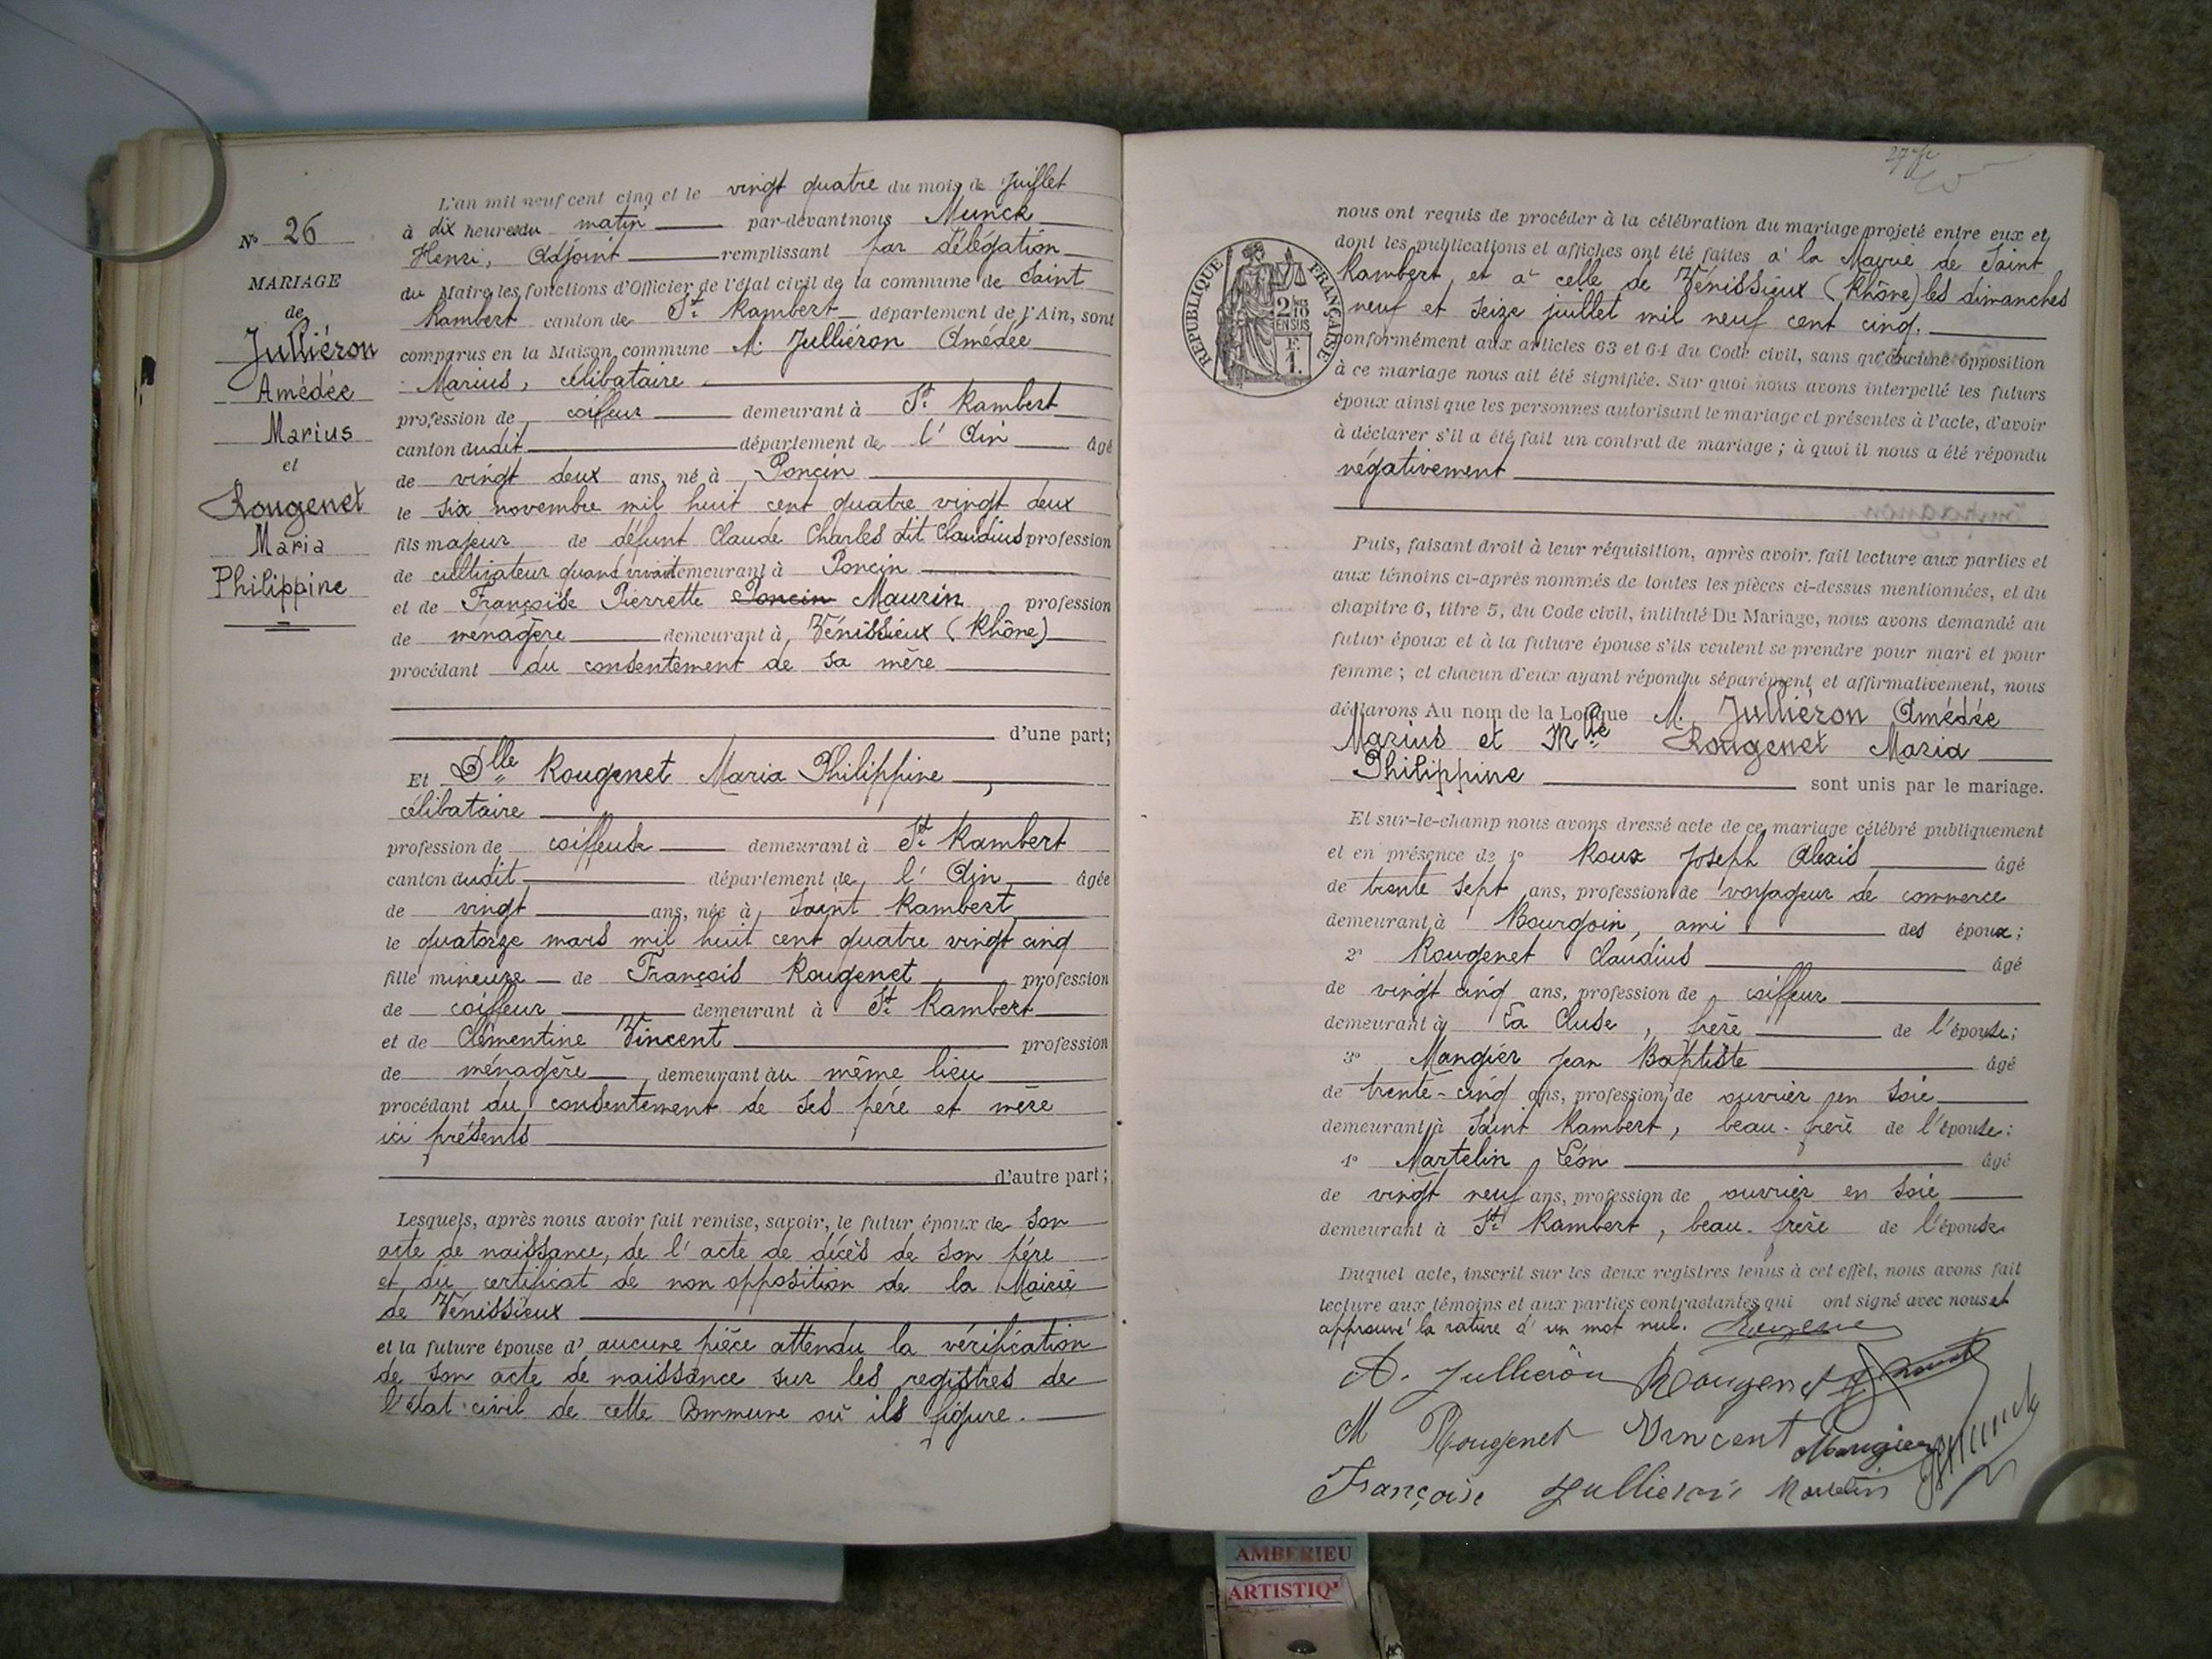 N° 26
MARIAGE
de
Julliéron
Amédée
Marius
et
Rougenet
Maria
Philippine
L'an mil neuf cent cinq et le vingt quatre du mois de Juillet
à dix heures du matin par-devant nous Munck
Henri, Adjoint remplissant par délégation
du Maire les fonctions d'Officier de l'état civil de la commune de Saint
Rambert canton de St Rambert département de l'Ain, sont
comparus en la Maison commune M. Julliéron Amédée
Marius, célibataire
profession de coiffeur demeurant à St Rambert
canton dudit département de l'Ain âgé
de vingt deux ans, né à Poncin
le six novembre mil huit cent quatre vingt deux
fils majeur de défunt Claude Charles dit Claudius profession
de cultivateur quand vivait demeurant à Poncin
et de Françoise Pierrette Poncin Maurin profession
de ménagère demeurant à Vénissieux (Rhône)
procédant du consentement de sa mère
d'une part;
Et Dlle Rougenet Maria Philippine,
célibataire
profession de coiffeuse demeurant à St Rambert
canton dudit département de l'Ain âgée
de vingt ans, née à Saint Rambert
le quatorze mars mil huit cent quatre vingt cinq
fille mineure de François Rougenet profession
de coiffeur demeurant à St Rambert
et de Clémentine Vincent profession
de ménagère demeurant au même lieu
procédant du consentement de ses père et mère
ici présents
d'autre part;
Lesquels, après nous avoir fait remise, savoir, le futur époux de son
acte de naissance, de l'acte de décès de son père
et du certificat de non opposition de la Mairie
de Vénissieux
et la future épouse d'aucune pièce attendu la vérification
de son acte de naissance sur les registres de
l'état civil de cette Commune où ils figure.
nous ont requis de procéder à la célébration du mariage projeté entre eux et
dont les publications et affiches ont été faites à la Mairie de Saint
Rambert et à celle de Vénissieux (Rhône) les dimanches
neuf et seize juillet mil neuf cent cinq.
conformément aux articles 63 et 64 du Code civil, sans qu'aucune opposition
à ce mariage nous ait été signifiée. Sur quoi nous avons interpellé les futurs
époux ainsi que les personnes autorisant le mariage et présentes à l'acte, d'avoir
à déclarer s'il a été fait un contrat de mariage; à quoi il nous a été répondu
négativement
RÉPUBLIQUE FRANÇAISE
2/10
EN SUS
F.
1.
Puis, faisant droit à leur réquisition, après avoir fait lecture aux parties et
aux témoins ci-après nommés de toutes les pièces ci-dessus mentionnées, et du
chapitre 6, titre 5, du Code civil, intitulé Du Mariage, nous avons demandé au
futur époux et à la future épouse s'ils veulent se prendre pour mari et pour
femme; et chacun d'eux ayant répondu séparément et affirmativement, nous
déclarons Au nom de la Loi que M. Julliéron Amédée
Marius et Mlle Rougenet Maria
Philippine sont unis par le mariage.
Et sur-le-champ nous avons dressé acte de ce mariage célébré publiquement
et en présence de 1° Roux Joseph Alexis âgé
de trente sept ans, profession de voyageur de commerce
demeurant à Bourgoin, ami des époux;
2° Rougenet Claudius âgé
de vingt cinq ans, profession de coiffeur
demeurant à La Cluse, frère de l'épouse;
3° Mangier Jean Baptiste âgé
de trente-cinq ans, profession de ouvrier en soie
demeurant à Saint Rambert, beau-frère de l'épouse;
4° Martelin Léon âgé
de vingt neuf ans, profession de ouvrier en soie
demeurant à St Rambert, beau-frère de l'épouse
Duquel acte, inscrit sur les deux registres tenus à cet effet, nous avons fait
lecture aux témoins et aux parties contractantes qui ont signé avec nous et
approuvé la rature d'un mot nul.
A. Julliéron Rougenet
M Rougenet Vincent Mangier Munck
Françoise Julliéron Martelin
AMBERIEU
ARTISTIQ